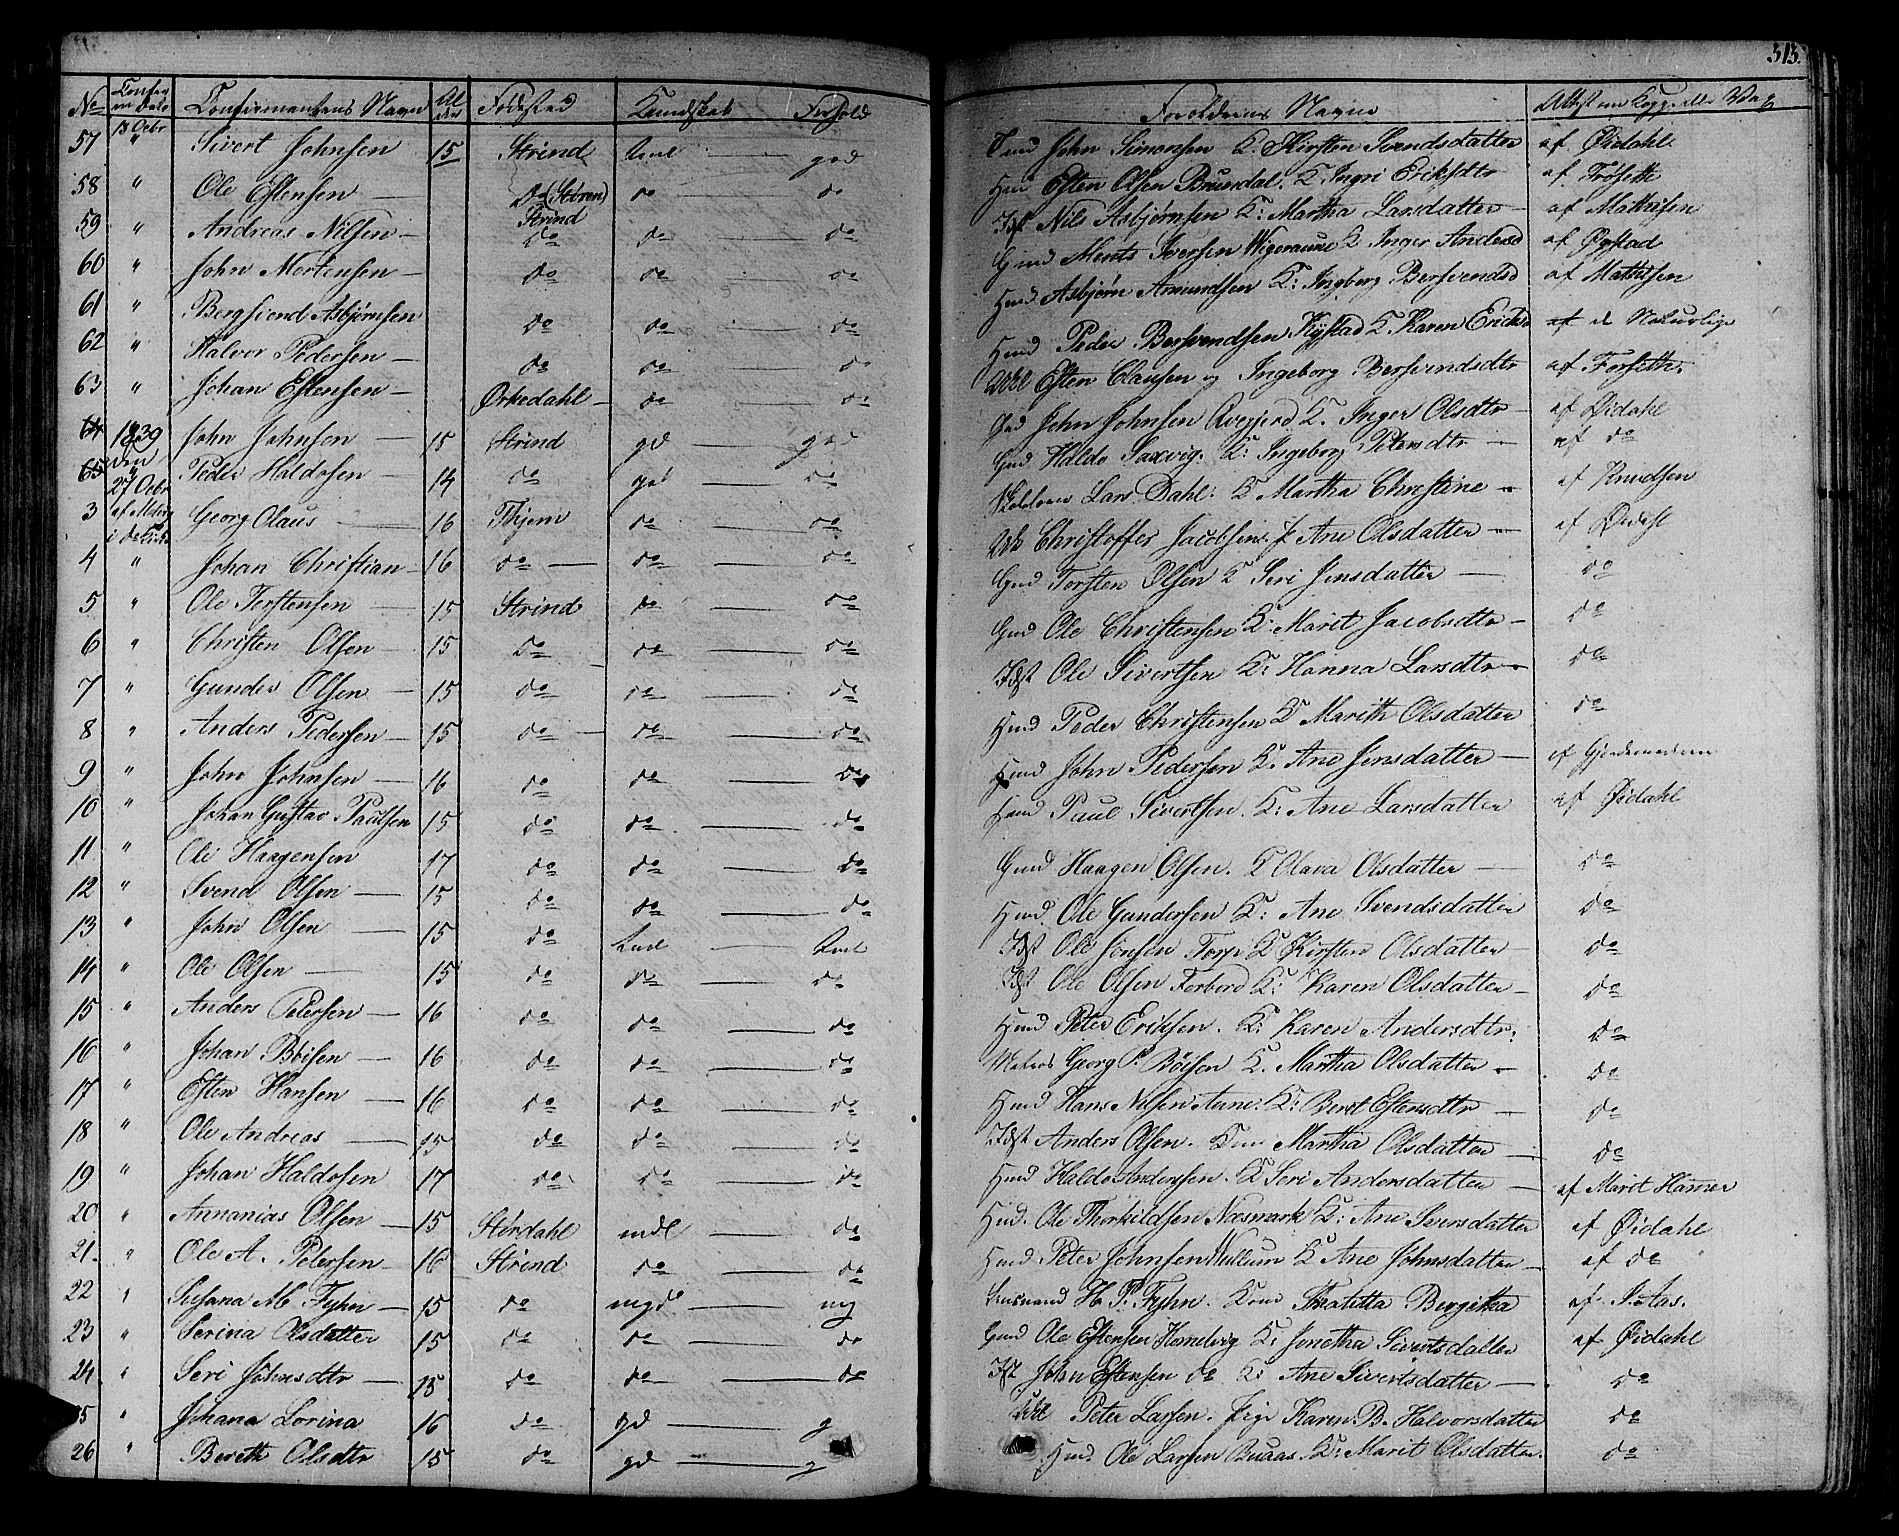 313.
No Confirmantens Navn Alder Fødested Kundskab Forhold Forældrenes Navne Attest om Kopper eller Vac
13 Octbr
57 " Sivert Johnsen 15 Strind god John Simonsen K. Kirsten Svendsdatter af Øidahl
58 " Ole Estensen — do (Støren) do — do Huusmd Esten Olsen Bruerdal. K. Ingri Eriksdtr af Frøseth
59 " Andreas Nilsen — Strind do do — do Nils Asbjørnsen K: Martha Larsdatter — af Mathisen
60 " John Mortensen — do do — do Gmd Ments Iversen Wigeraune K Inger Andersd af Øystad
61 " Bergsvend Asbjørnsen do do — do Hmd Asbjørn Amundsen K: Ingborg Bersvendsd af Mathisen
62 " Halvor Pedersen — do do — do Hmd Peder Bersvendsen Kystad K. Karen Eriksd af de Naturlige
63 " Johan Estensen — Ørkedahl — do — do Esten Clausen og Ingeborg Bersvendsdtr af Forseth.
64 1839 John Johnsen — 15 Strind gd — god John Johnsen K. Inger Olsdtr — af Øidahl
65 den 27 Octbr Peder Haldosen — 14 do god — do Gmd Haldo Saxvig. K: Ingeborg Petersdtr — af do
3 Georg Olaus — 16 Thjem do — do Lars Dahl: K Martha Christine — af Knudsen
4 " Johan Christian — 16 do — do — do Christoffer Jacobsen. P. Ane Olsdatter —
5 " Ole Torstensen — 15 Strind do — do Gmd Torsten Olsen K Seri Jensdatter — do
6 " Christen Olsen — 15 do do — do Gmd Ole Christensen K. Marit Jacobsdtr — do
7 " Gunder Olsen — 15 do do — do Idst Ole Sivertsen K: Hanna Larsdtr — do
8 " Anders Pedersen — 15 do — do — do Hmd Peder Christensen K Marith Olsdatter do
9 " John Johnsen — 16 do do — do Hmd John Pedersen K. Ane Jensdatter — af Gjordemoderen
10 " Johan Gustav Paulsen 15 do do — do Hmd Paul Sivertsen. K: Ane Larsdatter af Øidahl
11 " Ole Haagensen 17 do do — do Gmd Haagen Olsen. K Olava Olsdatter — do
12 " Svend Olsen — 15 do do — do Hmd. Ole Gundersen K: Ane Svendsdatter do
13 " John Olsen — 15 do Idst Ole Jensen Torp K Kirsten Olsdatter — do
14 " Ole Olsen — 15 do do — do Idst Ole Olsen Forbord K: Karen Olsdatter — do
15 " Anders Petersen — 16 do do — do Hmd Peter Eriksen. K: Karen Andersdtr. do
16 " Johan Böisen — 16 do do — do Matros Georg P. Böisen K. Martha Olsdatter — do
17 " Esten Hansen — 16 do do — do Hmd Hans Nilsen Aune. K: Beret Estensdtr — do
18 " Ole Andreas — 15 do do — do Idst Anders Olsen. Martha Olsdatter — do
19 " Johan Haldosen 17 do do — do Hmd Haldo Anderssen. K Seri Andersdatter — af Marit Hamer
20 " Annanias Olsen — 15 Størdahl mdl — do Hmd. Ole Thorkildsen Næsmark K: Ane Iversdatter af Øidahl
21. " Ole A. Petersen — 16 Strind do — do Hmd Peter Johnsen Wullum K Ane Johnsdatter — af do
22 " Susana M Fyhn — 15 do mgd — mg Lensmand H. P. Fyhn. Kone Birgitta af I. Aas.
23 " Serina Olsdatter 15 do do — do Gmd Ole Estensen K: Jonetha Sivertsdatter af Øidahl
24. " Seri Johnsdtr — 15 do do — do Idst John Estensen do K: Ane Sivertsdatter — do
25 " Johana Lorina 16 do gd — g Peter Larsen. Pige Karen B. Halvorsdatter do
26 " Bereth Olsdtr 15 do gd — g Hmd. Ole Larsen Buaas K: Marit Olsdatter. do